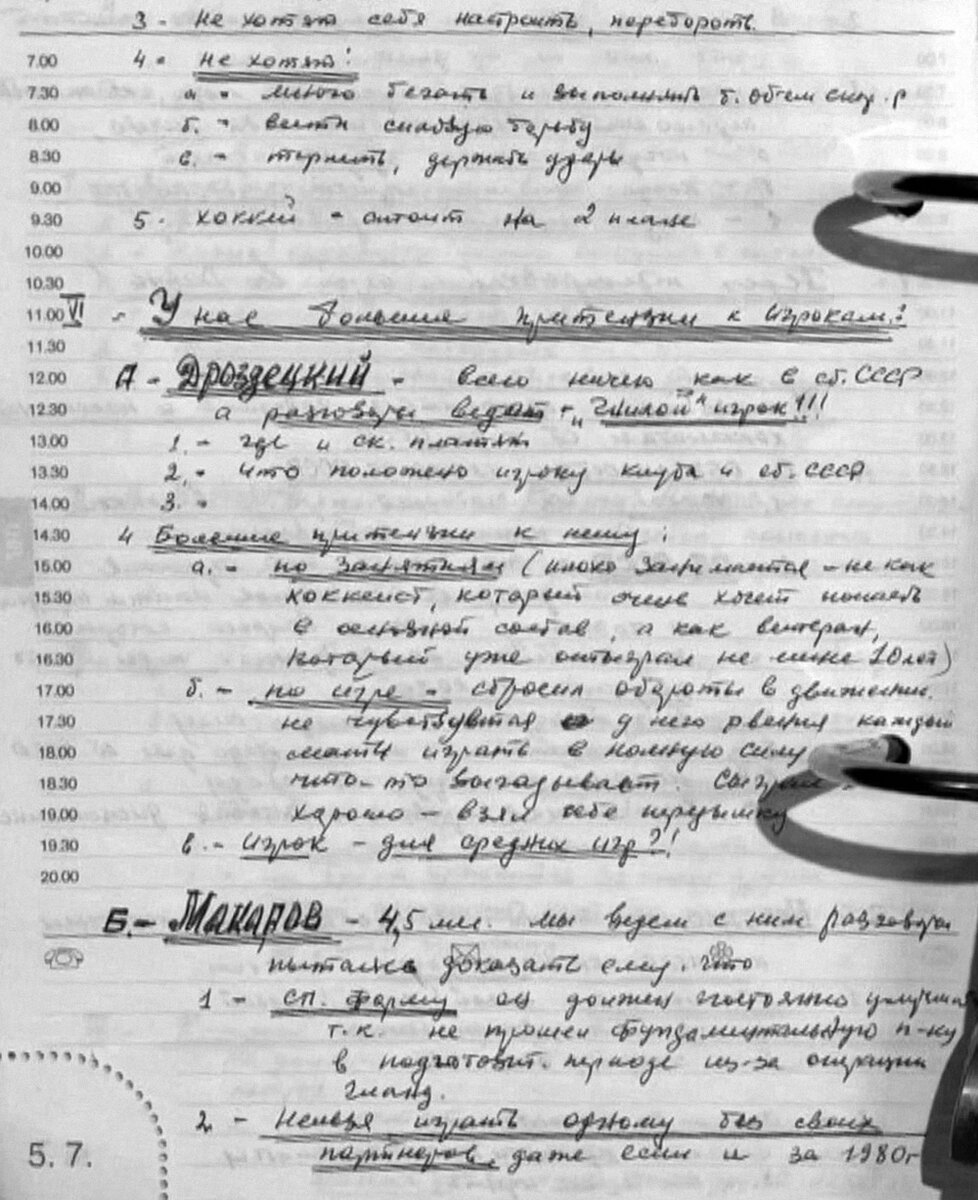 3 - не хотят себя настроить, перебороть.
7.00 4 - не хотят!
7.30 а. - много бегать и выполнять б. объем скор. р
8.00 б. - вести силовую борьбу
8.30 в. - терпеть, держать удары
9.00
9.30 5. хоккей - стоит на 2 плане
10.00
10.30
11.00 VI - У нас большие притензии к игрокам:
11.30
12.00 А - Дроздецкий - всего ничего как в сб. СССР
12.30 а разговоры ведет - "Гнилой" игрок!!!
13.00 1. - где и ск. платят
13.30 2. - что положено игроку клуба и сб. СССР
14.00 3. -
14.30 4 Большие притензии к нему:
15.00 а. - по занятиям (плохо занимается - не как
15.30 хоккеист, который очень хочет попасть
16.00 в основной состав, а как ветеран,
16.30 который уже отыграл не мене 10 лет)
17.00 б. - по игре - сбросил обороты в движении.
17.30 не чувствуется у него рвения каждый
18.00 матч играть в полную силу
18.30 что-то выгадывает. Сыграл
19.00 хорошо - взял себе передышку
19.30 в. - игрок - для средних игр?!
20.00
Б. - Макаров - 4,5 мес. мы ведем с ним разговоры
пытаясь доказать ему, что
1 - сп. форму он должен постоянно улучшать
т.к. не прошел фундаментальную п-ку
в подготовит. периоде из-за операции
гланд.
2 - Нельзя играть одному без своих
партнеров, даже если и за 1980г
5. 7.